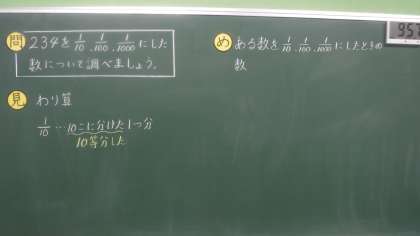 問 234を 1/10、1/100、1/1000 にした
数について調べましょう。
見 わり算
1/10 … 10こに分けた1つ分
10等分した
め ある数を 1/10、1/100、1/1000 にしたときの
数
957